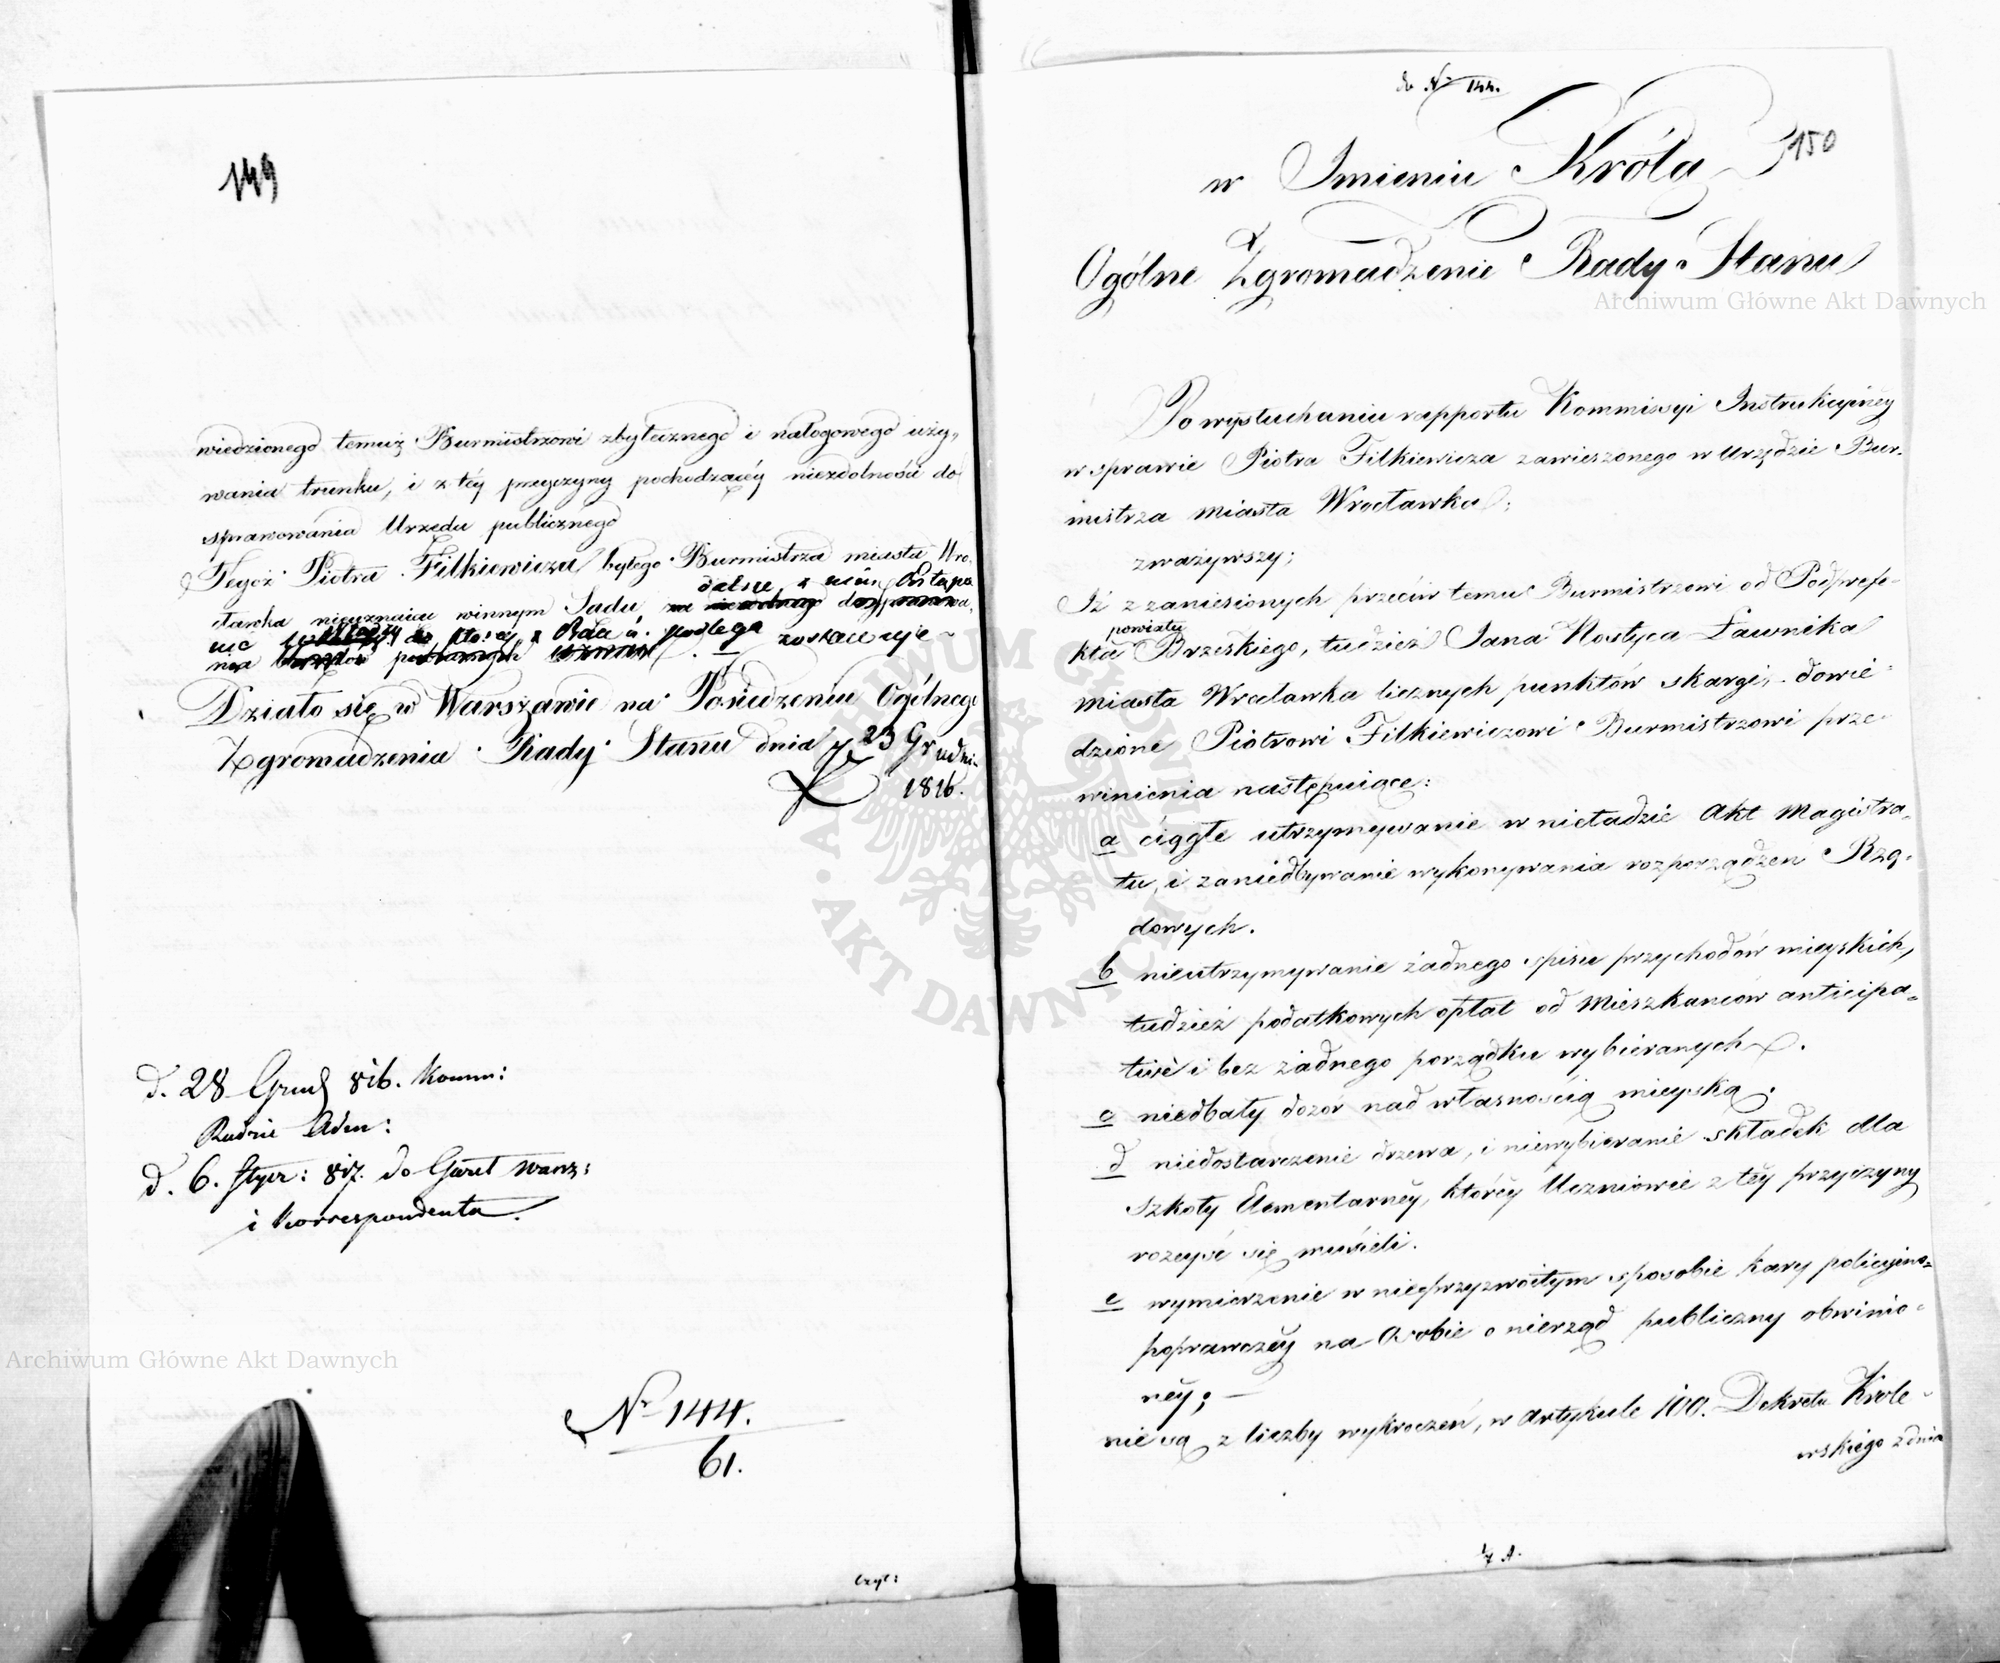 149
wiedzionego temuż Burmistrzowi zbytecznego i nałogowego uży„
wania trunku, i z téy przyczyny pochodzącéy niezdolności do
sprawowania Urzędu publicznego
Tegoż Piotra Filkiewicza byłego Burmistrza miasta Wro„
dalne z nim
cławka nieuznaiąc winnym Sądu
podlega zostaie
Działo się w Warszawie na Posiedzeniu Ogólnego
Zgromadzenia Rady Stanu dnia 23 Grudni
1816.
d. 28 Grud 816. Komm:
Rządzie
d. 6. Stycz: 817. do Gazet warsz:
i Korrespondenta.
Nr 144.
61.
do Nr 144.
150
w Imieniu Króla
Ogólne Zgromadzenie Rady Stanu
Po wysłuchaniu rapportu Kommissyi Instrukcyinéy
w sprawie Piotra Filkiewicza zawieszonego w Urzędzie Bur„
mistrza miasta Wrocławka;
zważywszy;
Iż z zaniesionych przeciw temu Burmistrzowi od Podprefe„
powiatu
kta Brzeskiego, tudzież Jana Nostyca Ławnika
miasta Wrocławka licznych punktów skargi, dowie„
dzione Piotrowi Filkiewiczowi Burmistrzowi prze„
winienia następuiące:
a ciągłe utrzymywanie w nieładzie Akt Magistra„
tu, i zaniedbywanie wykonywania rozporządzeń Rzą„
dowych.
b nieutrzymywanie żadnego spisu przychodów mieyskich,
tudzież podatkowych opłat od Mieszkańców anticipa„
tive i bez żadnego porządku wybieranych.
c niedbały dozór nad własnością mieyską.
d niedostarczenie drzewa, i niewybieranie składek dla
szkoły Elementarnéy, któréy Uczniowie z téy przyczyny
rozeyść się musieli.
e wymierzenie w nieprzyzwoitym sposobie kary policyino„
poprawczéy na Osobie o nierząd publiczny obwinio„
néy;
nie są z liczby wykroczeń, w Artykule 100. Dekretu Króle„
wskiego z dnia
Archiwum Główne Akt Dawnych
Archiwum Główne Akt Dawnych
ARCHIWUM GŁÓWNE AKT DAWNYCH